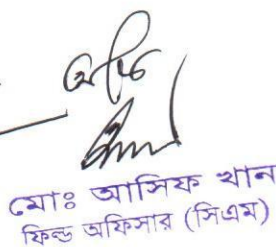 মোঃ আসিফ খান
ফিল্ড অফিসার (সিএম)